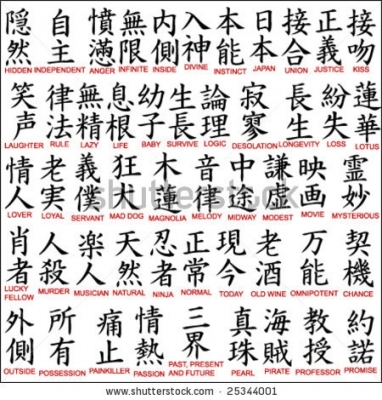 隠然 自主 憤懣 無限 内側 入神 本能 日本 接合 正義 接吻
HIDDEN INDEPENDENT ANGER INFINITE INSIDE DIVINE INSTINCT JAPAN UNION JUSTICE KISS
笑声 律法 無精 息根 幼子 生長 論理 寂寥 長生 紛失 蓮華
LAUGHTER RULE LAZY LIFE BABY SURVIVE LOGIC DESOLATION LONGEVITY LOSS LOTUS
情人 老実 義僕 狂犬 木蓮 音律 中途 謙虚 映画 霊妙
shutterstock
LOVER LOYAL SERVANT MAD DOG MAGNOLIA MELODY MIDWAY MODEST MOVIE MYSTERIOUS
肖者 人殺 楽人 天然 忍者 正常 現今 老酒 万能 契機
LUCKY FELLOW MURDER MUSICIAN NATURAL NINJA NORMAL TODAY OLD WINE OMNIPOTENT CHANCE
外側 所有 痛止 情熱 三界 真珠 海賊 教授 約諾
OUTSIDE POSSESSION PAINKILLER PASSION PAST, PRESENT AND FUTURE PEARL PIRATE PROFESSOR PROMISE
www.shutterstock.com · 25344001